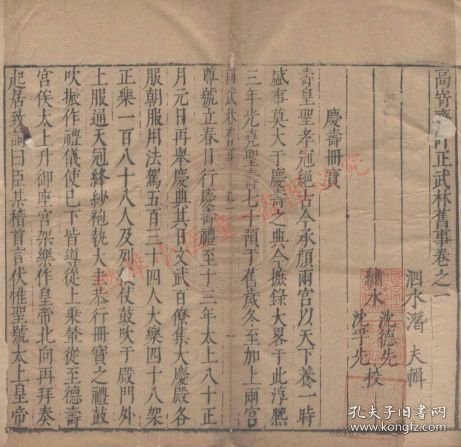 高寄齋訂正武林舊事卷之一
泗水潛夫輯
繡水 沈德先
沈孚先 校
慶壽冊寶
壽皇聖孝冠絶古今承顔兩宮以天下養一時
盛事莫大于慶壽之典今摭録大畧于此淳熙
三年光堯聖壽七十預于舊歲冬至加上兩宮
武林舊事
尊號立春日行慶壽禮至十三年太上八十正
月元日再舉慶典其日文武百僚集大慶殿各
服朝服用法駕五百三十四人大樂四十八架
正樂一百八十八人及列仗鼓吹于殿門外
上服通天冠絳紗袍執大圭恭行冊寶之禮鼓
吹振作禮儀使已下皆導從上乗輦從至德壽
宮俟太上升御座宮架樂作皇帝北向再拜奏
起居致詞曰臣某稽首言伏惟聖號太上皇帝
孔夫子旧书网